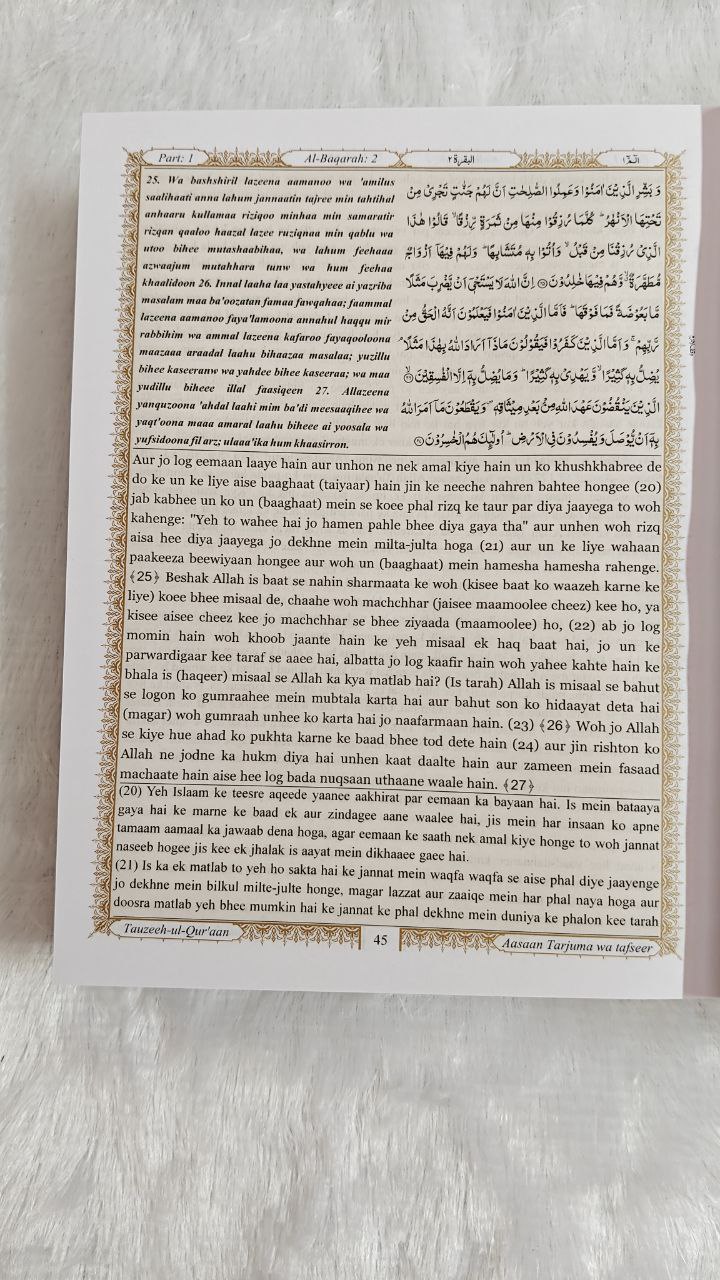 Part: 1
Al-Baqarah: 2
البقرة ٢
الٓمّٓ ١
25. Wa bashshiril lazeena aamanoo wa 'amilus
saalihaati anna lahum jannaatin tajree min tahtihal
anhaaru kullamaa riziqoo minhaa min samaratir
rizqan qaaloo haazal lazee ruziqnaa min qablu wa
utoo bihee mutashaabihaa, wa lahum feehaaa
azwaajum mutahhara tunw wa hum feehaa
khaalidoon 26. Innal laaha laa yastahyeee ai yazriba
masalam maa ba'oozatan famaa fawqahaa; faammal
lazeena aamanoo faya'lamoona annahul haqqu mir
rabbihim wa ammal lazeena kafaroo fayaqooloona
maazaaa araadal laahu bihaazaa masalaa; yuzillu
bihee kaseeranw wa yahdee bihee kaseeraa; wa maa
yudillu biheee illal faasiqeen 27. Allazeena
yanquzoona 'ahdal laahi mim ba'di meesaaqihee wa
yaqt'oona maaa amaral laahu biheee ai yoosala wa
yufsidoona fil arz; ulaaa'ika hum khaasirron.
وَ بَشِّرِ الَّذِیْنَ اٰمَنُوْا وَعَمِلُوا الصّٰلِحٰتِ اَنَّ لَهُمْ جَنّٰتٍ تَجْرِیْ مِنْ
تَحْتِهَا الْاَنْهٰرُ ؕ كُلَّمَا رُزِقُوْا مِنْهَا مِنْ ثَمَرَةٍ رِّزْقًا ۙ قَالُوْا هٰذَا
الَّذِیْ رُزِقْنَا مِنْ قَبْلُ ۙ وَاُتُوْا بِهٖ مُتَشَابِهًا ؕ وَلَهُمْ فِیْهَاۤ اَزْوَاجٌ
مُّطَهَّرَةٌ ۙ وَّهُمْ فِیْهَا خٰلِدُوْنَ ﴿۲۵﴾ اِنَّ اللّٰهَ لَا یَسْتَحْیٖۤ اَنْ یَّضْرِبَ مَثَلًا
مَّا بَعُوْضَةً فَمَا فَوْقَهَا ؕ فَاَمَّا الَّذِیْنَ اٰمَنُوْا فَیَعْلَمُوْنَ اَنَّهُ الْحَقُّ مِنْ
رَّبِّهِمْ ۚ وَاَمَّا الَّذِیْنَ كَفَرُوْا فَیَقُوْلُوْنَ مَاذَاۤ اَرَادَ اللّٰهُ بِهٰذَا مَثَلًا ۘ
یُضِلُّ بِهٖ كَثِیْرًا ۙ وَّیَهْدِیْ بِهٖ كَثِیْرًا ؕ وَمَا یُضِلُّ بِهٖۤ اِلَّا الْفٰسِقِیْنَ ﴿۲۶﴾
الَّذِیْنَ یَنْقُضُوْنَ عَهْدَ اللّٰهِ مِنْۢ بَعْدِ مِیْثَاقِهٖ ۪ وَیَقْطَعُوْنَ مَاۤ اَمَرَ اللّٰهُ
بِهٖۤ اَنْ یُّوْصَلَ وَیُفْسِدُوْنَ فِی الْاَرْضِ ؕ اُولٰٓىِٕكَ هُمُ الْخٰسِرُوْنَ ﴿۲۷﴾
Aur jo log eemaan laaye hain aur unhon ne nek amal kiye hain un ko khushkhabree de
do ke un ke liye aise baaghaat (taiyaar) hain jin ke neeche nahren bahtee hongee (20)
jab kabhee un ko un (baaghaat) mein se koee phal rizq ke taur par diya jaayega to woh
kahenge: "Yeh to wahee hai jo hamen pahle bhee diya gaya tha" aur unhen woh rizq
aisa hee diya jaayega jo dekhne mein milta-julta hoga (21) aur un ke liye wahaan
paakeeza beewiyaan hongee aur woh un (baaghaat) mein hamesha hamesha rahenge.
﴾25﴿ Beshak Allah is baat se nahin sharmaata ke woh (kisee baat ko waazeh karne ke
liye) koee bhee misaal de, chaahe woh machchhar (jaisee maamoolee cheez) kee ho, ya
kisee aisee cheez kee jo machchhar se bhee ziyaada (maamoolee) ho, (22) ab jo log
momin hain woh khoob jaante hain ke yeh misaal ek haq baat hai, jo un ke
parwardigaar kee taraf se aaee hai, albatta jo log kaafir hain woh yahee kahte hain ke
bhala is (haqeer) misaal se Allah ka kya matlab hai? (Is tarah) Allah is misaal se bahut
se logon ko gumraahee mein mubtala karta hai aur bahut son ko hidaayat deta hai
(magar) woh gumraah unhee ko karta hai jo naafarmaan hain. (23) ﴾26﴿ Woh jo Allah
se kiye hue ahad ko pukhta karne ke baad bhee tod dete hain (24) aur jin rishton ko
Allah ne jodne ka hukm diya hai unhen kaat daalte hain aur zameen mein fasaad
machaate hain aise hee log bada nuqsaan uthaane waale hain. ﴾27﴿
(20) Yeh Islaam ke teesre aqeede yaanee aakhirat par eemaan ka bayaan hai. Is mein bataaya
gaya hai ke marne ke baad ek aur zindagee aane waalee hai, jis mein har insaan ko apne
tamaam aamaal ka jawaab dena hoga, agar eemaan ke saath nek amal kiye honge to woh jannat
naseeb hogee jis kee ek jhalak is aayat mein dikhaaee gaee hai.
(21) Is ka ek matlab to yeh ho sakta hai ke jannat mein waqfa waqfa se aise phal diye jaayenge
jo dekhne mein bilkul milte-julte honge, magar lazzat aur zaaiqe mein har phal naya hoga aur
doosra matlab yeh bhee mumkin hai ke jannat ke phal dekhne mein duniya ke phalon kee tarah
Tauzeeh-ul-Qur'aan
45
Aasaan Tarjuma wa tafseer